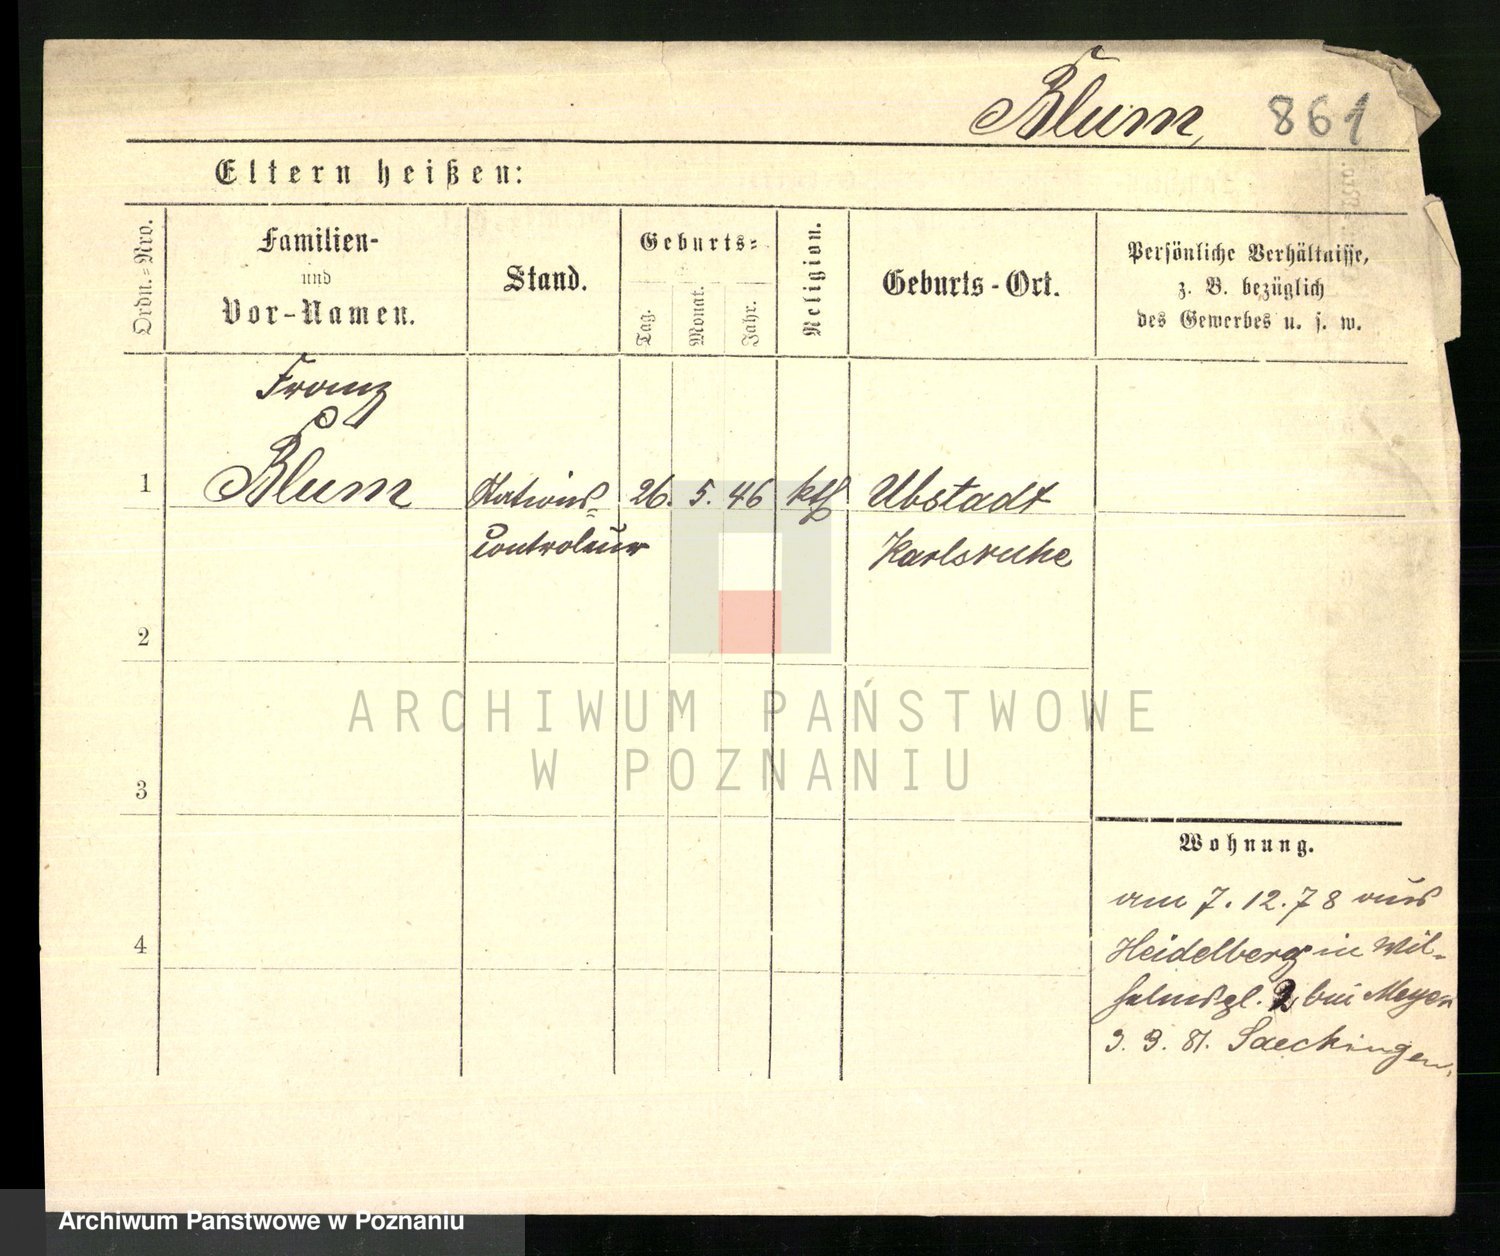 Blum, 861
Eltern heißen:
Ordn.=Nro.
Familien-
und
Vor-Namen.
Stand.
Geburts=
Tag.
Monat.
Jahr.
Religion.
Geburts-Ort.
Persönliche Verhältnisse,
z. B. bezüglich
des Gewerbes u. s. w.
Franz
1 Blum Stations= 26. 5. 46 kth Ubstadt
controleur Karlsruhe
2
ARCHIWUM PAŃSTWOWE
W POZNANIU
3
Wohnung.
am 7. 12. 78 aus
4 Heidelberg in Wil-
helmspl. 2 bei Meyer
3. 3. 81. Saeckingen.
Archiwum Państwowe w Poznaniu